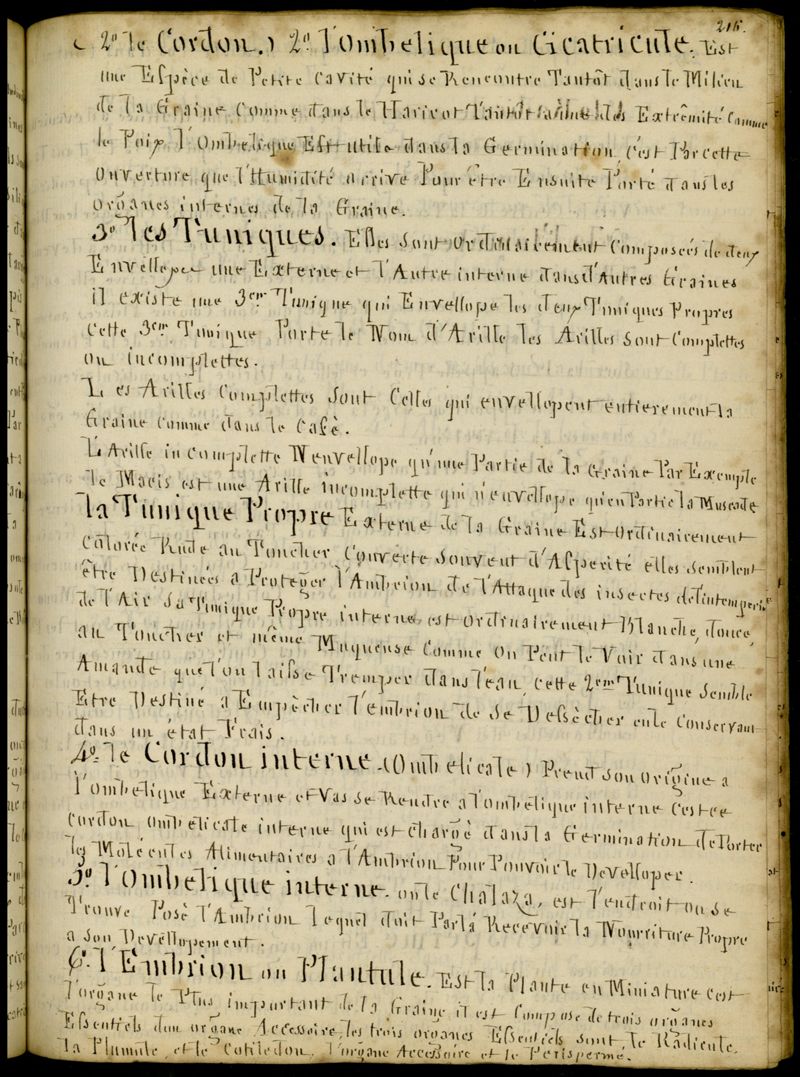 216.
( 2º le Cordon.) 2º l'ombelique ou Cicatricule. Est
une Espèce de Petite Cavité qui se Rencontre Tantôt dans le Milieu
de la Graine Comme dans le Haricot Tantôt Extrêmité Comme
le Poix l'Ombelique Est utile dans la Germination c'est Par cette
Ouverture que l'Humidité arrive Pour être Ensuite Porté dans les
organes internes de la Graine.
3º les Tuniques. Elles sont ordinairement Composées de deux
Envellopes une Externe et l'Autre interne dans d'Autres Graines
il existe une 3em Tunique qui Envellope les deux Tuniques Propres
Cette 3em Tunique Porte le Nom d'Arille les Arilles sont Complettes
ou incomplettes.
Les Arilles Complettes sont Celles qui envellopent entierement la
Graine comme dans le Café.
L'Arille incomplette N'envellope qu'une Partie de la Graine Par Exemple
le Macis est une Arille incomplette qui n'envellope qu'en Partie la Muscade
la Tunique Propre Externe de la Graine Est Ordinairement
Colorée Rude au Toucher Couverte Souvent d'Asperité elles semblent
être Destinées a Proteger l'Ambrion de l'Attaque des insectes de l'intemperie
de l'Air sa Tunique Propre interne est ordinairement Blanche, douce
au Toucher et même Muqueuse Comme on Peut le Voir dans une
Amande que l'on laisse Tremper dans l'eau, cette 2em Tunique Semble
Etre Destiné a Empêcher l'embrion de se Dessècher en le Conservant
dans un état Frais.
4º le Cordon interne (Ombelicale) Prend son origine a
l'ombelique Externe et vas se Rendre a l'ombelique interne c'est ce
Cordon Ombelicale interne qui est chargé dans la Germination de Porter
les Molecules Alimentaires a l'Ambrion Pour Pouvoir le Developper.
5º l'Ombelique interne ou le Chalaza, est l'endroit ou se
Trouve Posé l'Ambrion lequel doit Par la Recevoir la Nourriture Propre
a Son Devellopement.
6º l'Embrion ou Plantule. Est la Plante en Miniature c'est
l'organe le Plus important de la Graine il est Composé de trois organes
Essentiels d'un organe Accessoire, les trois organes Essentiels sont le Radicule.
la Plumule et le Cotiledon. l'organe Accessoire et le Perisperme.